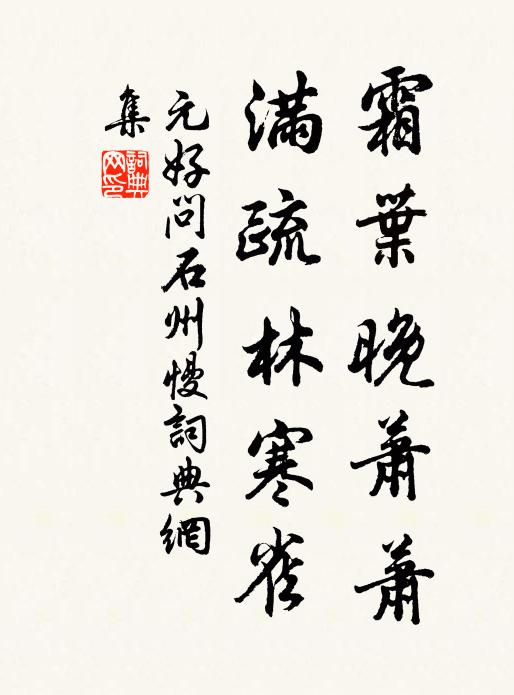 霜葉晚蕭蕭
滿疏林寒雀
元好問石州慢詞典網
集
詞典网印